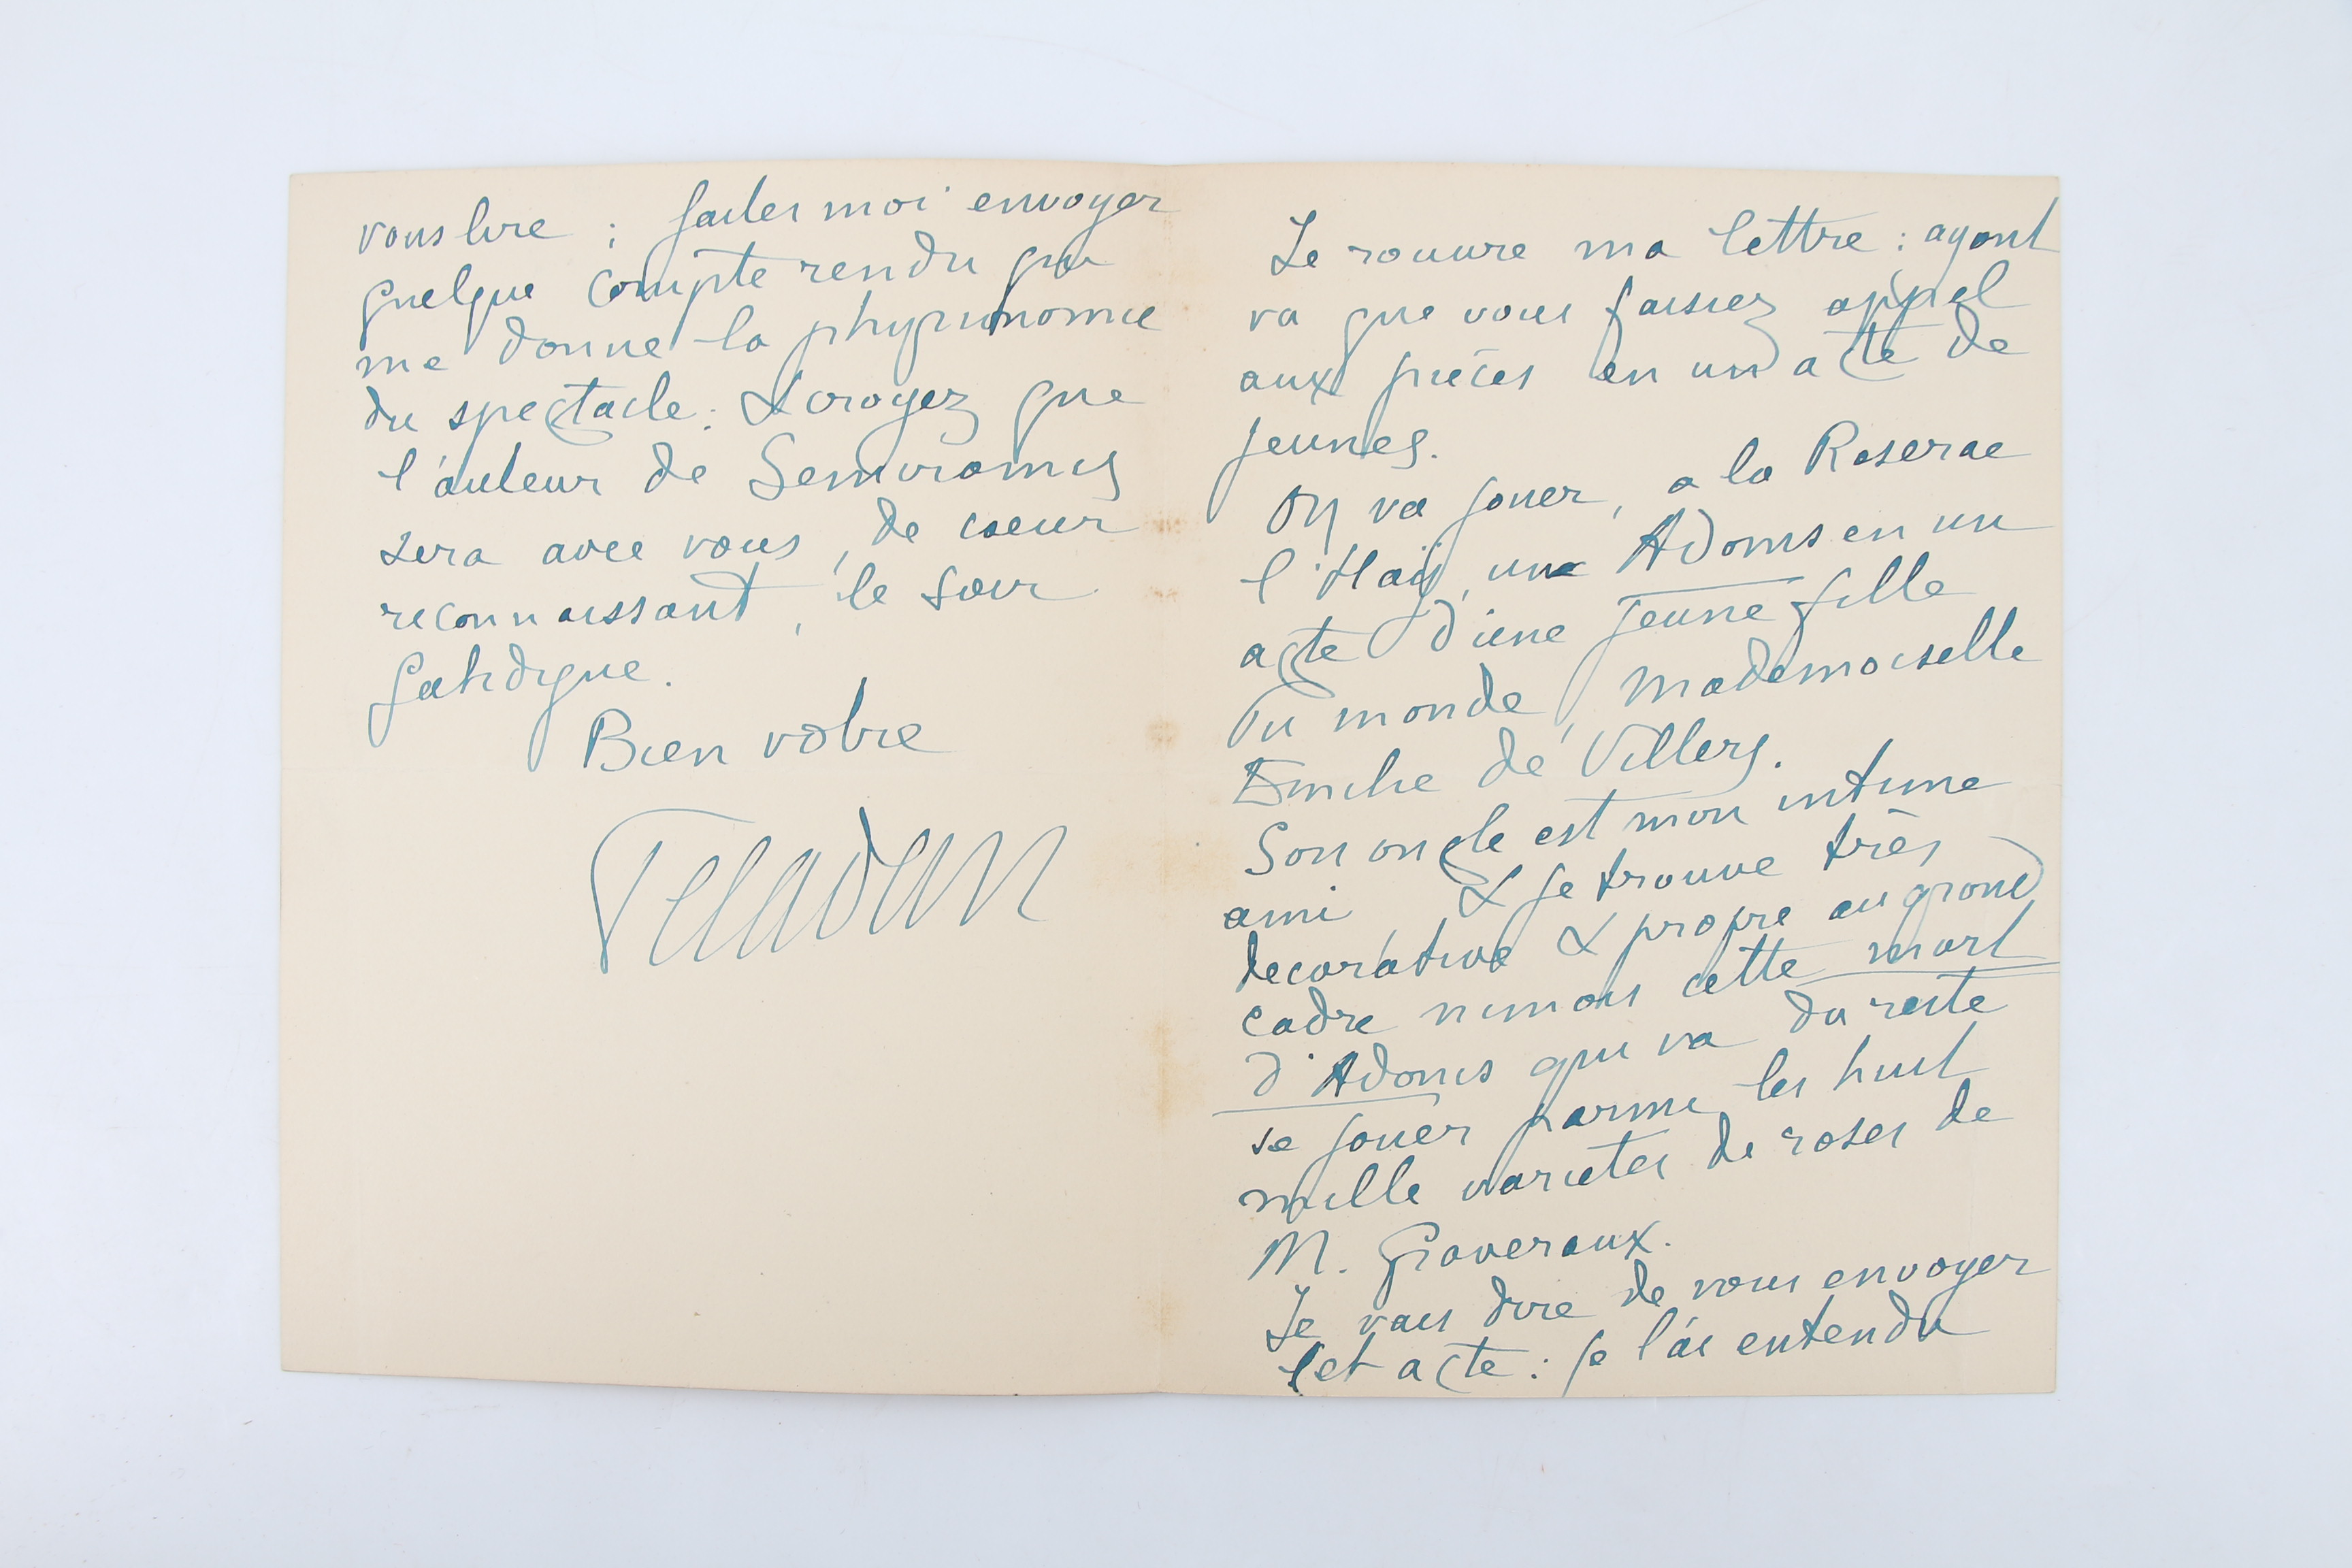 vous lire ; faites moi envoyer
quelque compte rendu qui
me donne la physionomie
du spectacle. & croyez que
l'auteur de Semiramis
sera avec vous, de coeur
reconnaissant, le soir
fatidique.
Bien vôtre
Peladan
Je rouvre ma lettre : ayant
vu que vous faisiez appel
aux pièces en un acte de
jeunes.
On va jouer, a la Roserae
l'Haÿ, un Adonis en un
acte d'une jeune fille
du monde, Mademoiselle
Emilie de Villers.
Son oncle est mon intime
ami, & je trouve très
decorative & propre au grand
cadre nimois cette mort
d'Adonis qui va du reste
se jouer parmi les huit
mille varietes de roses de
M. Graveraux.
Je vais dire de vous envoyer
cet acte : je l'ai entendu